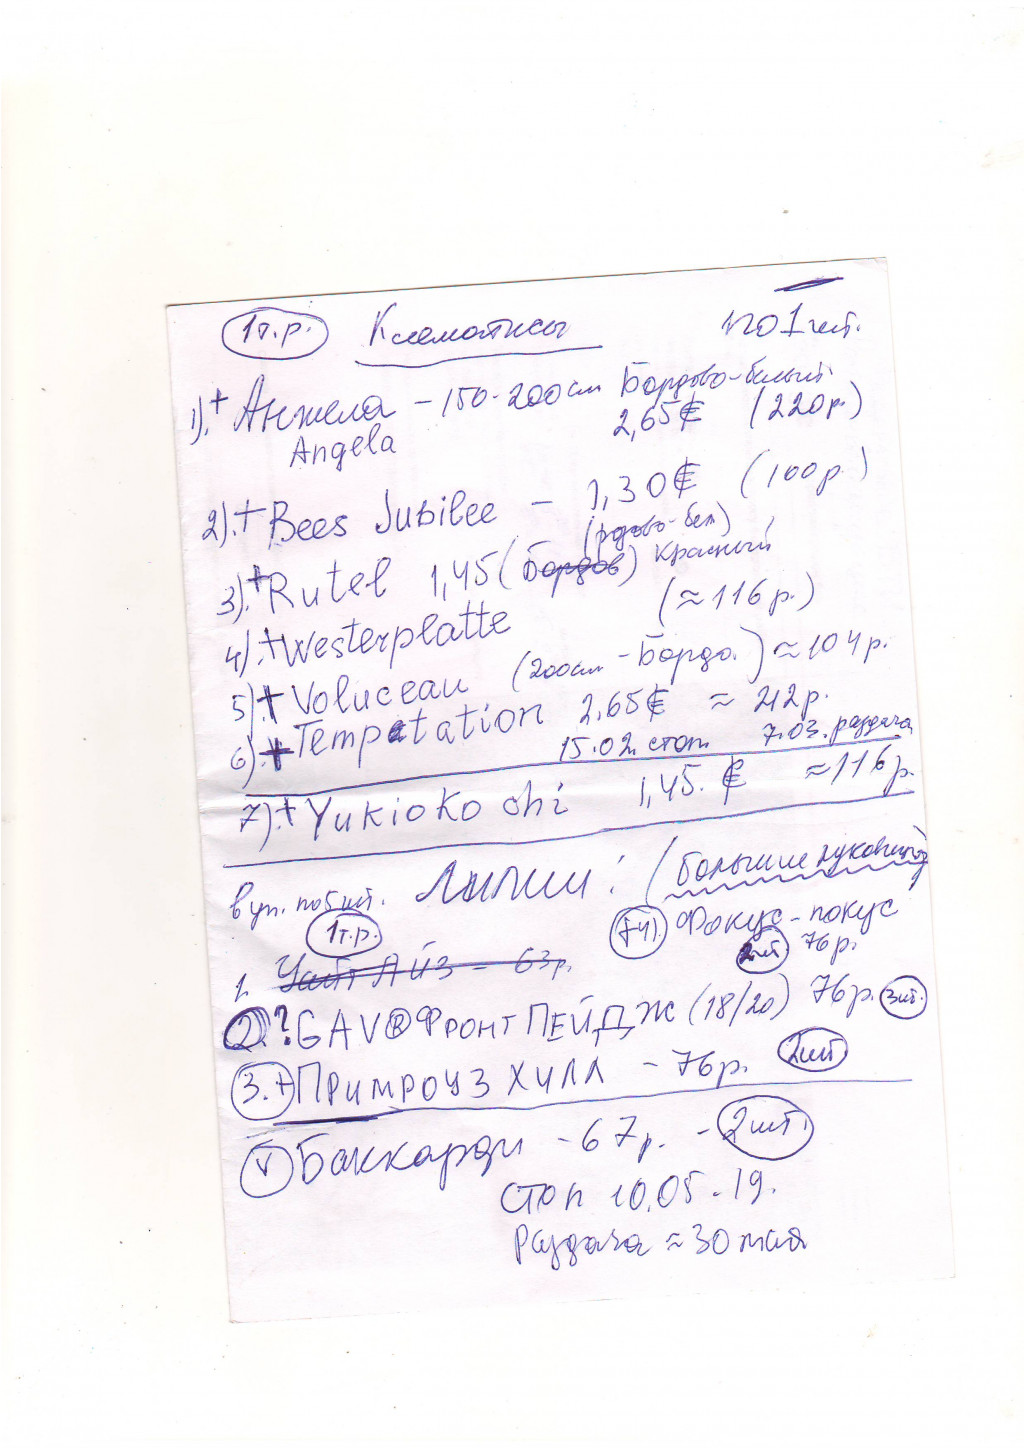 1т.р. Клематисы по 1 шт.
1).+ Анжела – 150-200см Бордово-белый
Angela 2,65€ (220р.)
2).+ Bees Jubilee – 1,30€ (100р.)
3).+ Rutel 1,45 (Бордов) красный
4).+ Westerplatte (≈116р.)
5).+ Voluceau (200см – Бордо.) ≈104р.
6).+ Temptation 2.65€ ≈ 212р.
15.02. стоп. 7.03. раздача
7).+ Yukiokoshi 1,45.€ ≈116р.
в уп. по 5 шт. Лилии: (большие луковицы)
1т.р. Фокус-покус
2шт 76р.
1. Уайт Айз – 63р.
2. ? GAV® Фронт Пейдж (18/20) 76р. 3шт.
3.+ Примроуз Хилл – 76р. 2шт
V Баккарди – 67р. – 2шт.
Стоп 10.05.19.
Раздача ≈ 30 мая